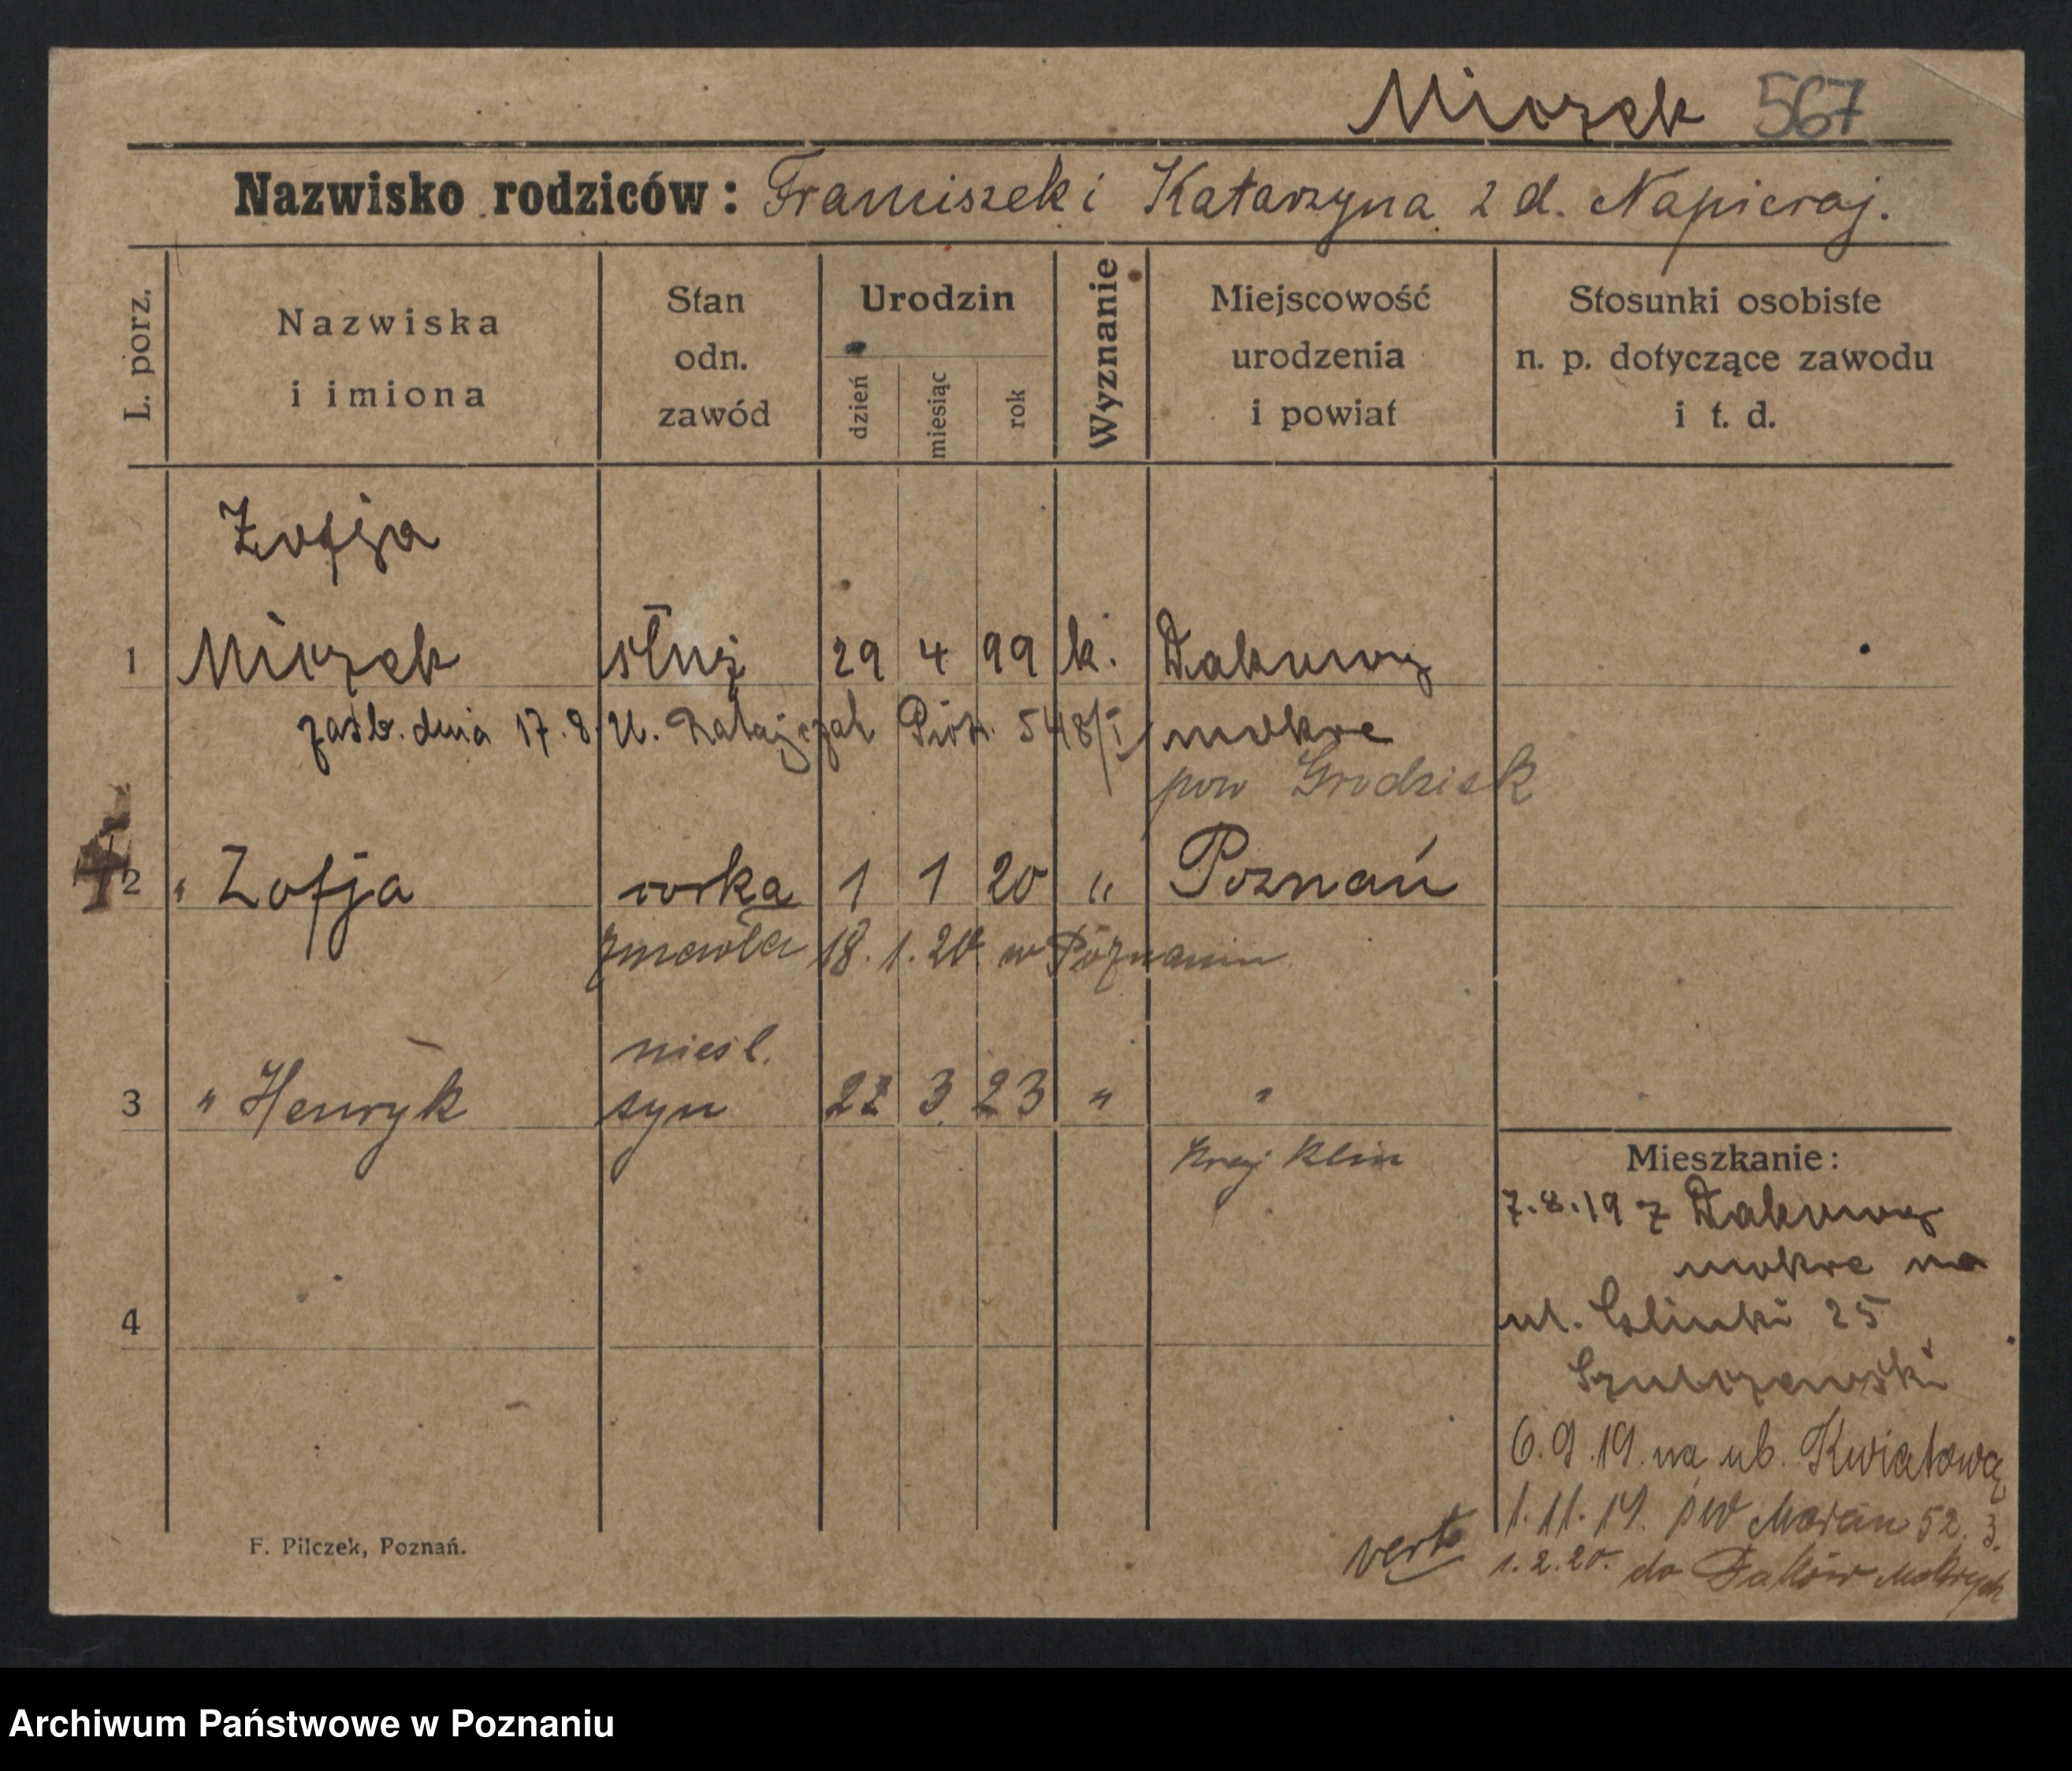 Miozek 567
Nazwisko rodziców: Franciszek i Katarzyna z d. Napieraj.
L. porz.
Nazwiska
i imiona
Stan
odn.
zawód
Urodzin
dzień
miesiąc
rok
Wyznanie
Miejscowość
urodzenia
i powiat
Stosunki osobiste
n. p. dotyczące zawodu
i t. d.
Zofja
1 Miozek służ 29 4 99 k. Dakowy
zaśb. dnia 17.8. Ratajczak Piotr. 548/I mokre
pow Grodzisk
2 " Zofja corka 1 1 20 " Poznań
zmarła 18.1.20 w Poznaniu
nieśl.
3 " Henryk syn 22 3 23 " "
Kraj Klin
Mieszkanie:
7.8.19 z Dakowy
mokre na
ul. Glinki 25
4
6.9.19 na ul. Kwiatową
1.11.19. św Marcin 52. 3.
verte 1.2.20. do Daków Mokrych
F. Pilczek, Poznań.
Archiwum Państwowe w Poznaniu